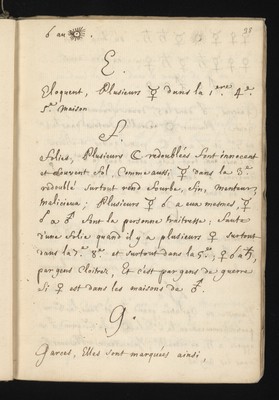 38
6 au ☀.
E.
Eloquent, Plusieurs ☿ dans la 1.ere 4.e
5.e maison
F.
Folie, Plusieurs ☾ redoublées sont innocent
et souvent fol, Comme aussi ☿ dans la 3.e
redoublé surtout rend fourbe, fin, menteur,
Malicieux; Plusieurs ☿ 6 a eux mesmes, ☿
6 a ♂ sont la personne traitresse;
d'une folie quand il y a plusieurs ♀ surtout
dans la 7.e 8.e et surtout dans la 5.e; ♀ 6 a ♄,
par gens Cloitrés, Et c'est par gens de guerre
si ♀ est dans les maisons de ♂.
G.
Garces, Elles sont marquées ainsi,